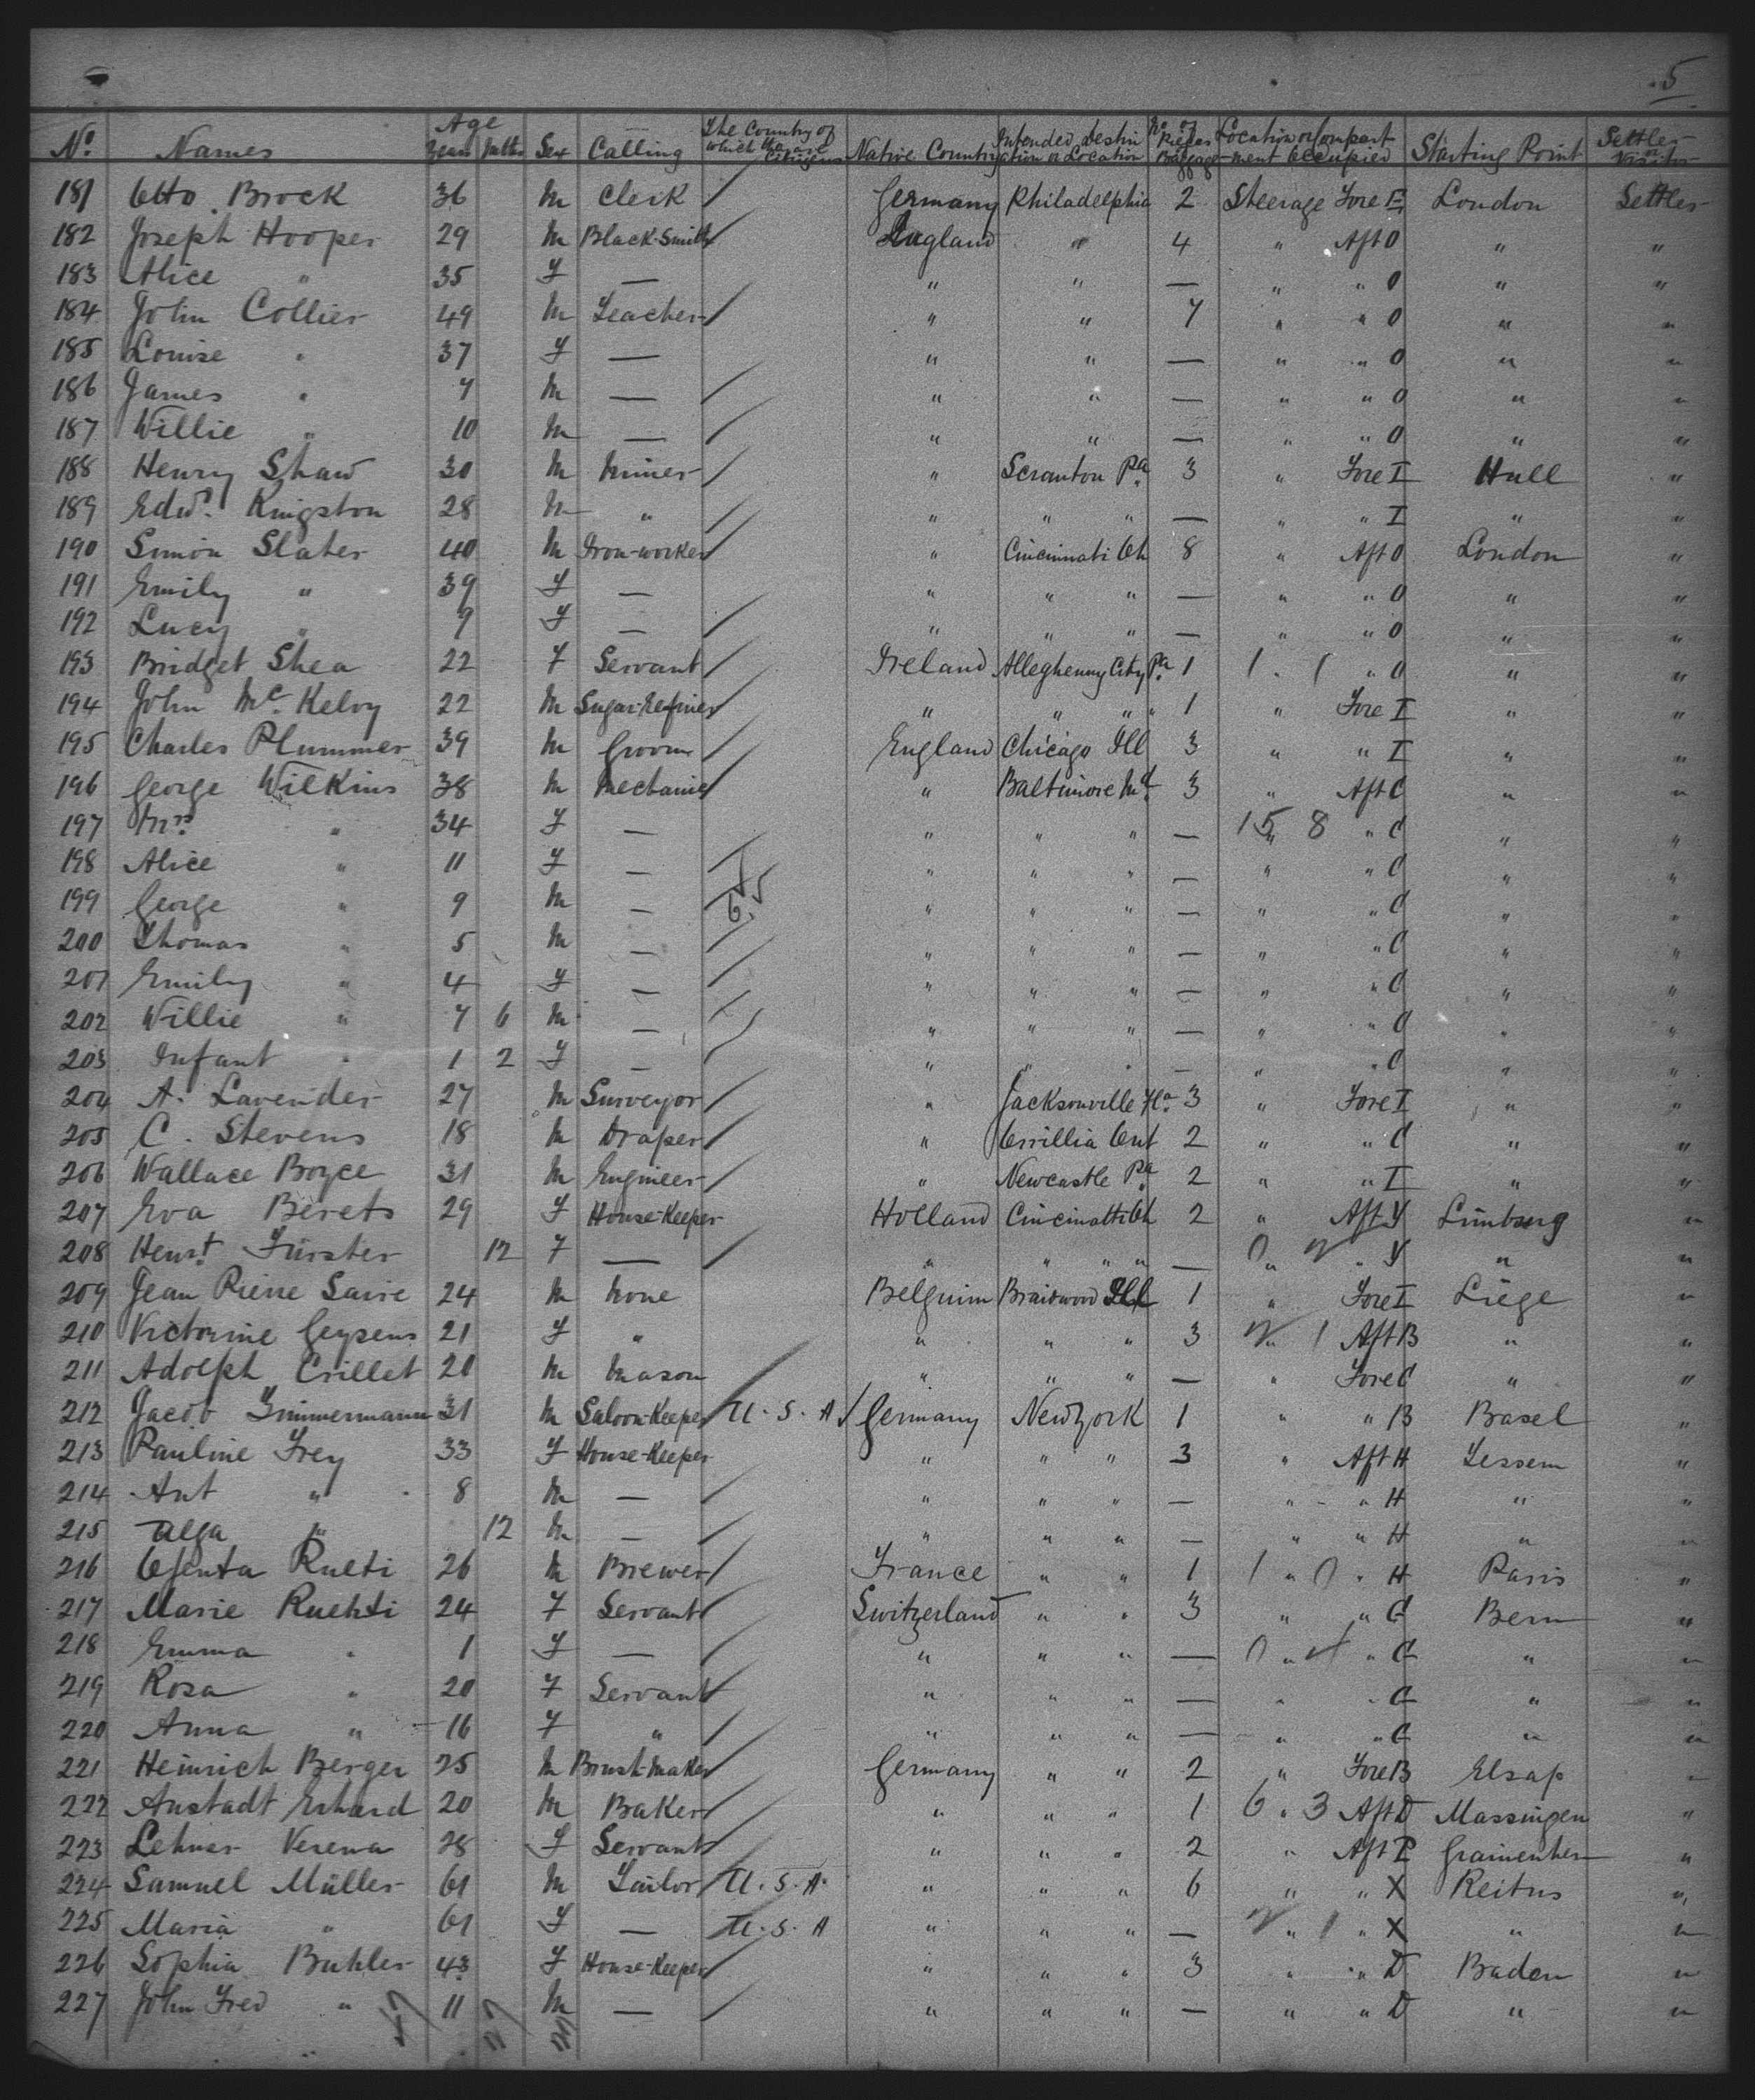 5
No. Names Age Years Mths Sex Calling The Country of which they are Citizens Native Country Intended destination or Location No. of Pieces Baggage Location or Compartment Occupied Starting Point Settler or Visitor
181 Otto Brock 36 M Clerk / Germany Philadelphia 2 Steerage Fore E London Settler
182 Joseph Hooper 29 M Black-Smith / England " 4 " Aft O " "
183 Alice " 35 F — " " — " " O " "
184 John Collier 49 M Teacher / " " 7 " " O " "
185 Louise " 37 F — " " — " " O " "
186 James " 7 M — / " " — " " O " "
187 Willie " 10 M — / " " — " " O " "
188 Henry Shaw 30 M Miner / " Scranton Pa. 3 " Fore I Hull "
189 Edwd. Kingston 28 M " / " " " — " " I " "
190 Simon Slater 40 M Iron-worker / " Cincinnati Oh 8 " Aft O London "
191 Emily " 39 F — " " " — " " O " "
192 Lucy " 9 F — / " " " — " " O " "
193 Bridget Shea 22 F Servant / Ireland Alleghenny City Pa. 1 1 . 1 " O " "
194 John Mc. Kelvy 22 M Sugar-Refiner / " " " " 1 " Fore I " "
195 Charles Plummer 39 M Groom / England Chicago Ill 3 " " I " "
196 George Wilkins 38 M Mechanic / " Baltimore Md. 3 " Aft C " "
197 Mrs " 34 F — " " " — 15 8 " C " "
198 Alice " 11 F — / " " " — " " C " "
199 George " 9 M — / " " " — " " C " "
200 Thomas " 5 M — / " " " — " " C " "
201 Emily " 4 F — / " " " — " " C " "
202 Willie " 7 6 M — / " " " — " " C " "
203 Infant " 1 2 F — / " " " — " " C " "
204 A. Lavender 27 M Surveyor / " Jacksonville Fla. 3 " Fore I " "
205 C. Stevens 18 M Draper / " Orrillia Ont 2 " " C " "
206 Wallace Boyce 31 M Engineer / " Newcastle Pa 2 " " I " "
207 Eva Berets 29 F House-Keeper Holland Cincinatti Oh 2 " Aft Y Limburg "
208 Henrt. Fürster 12 F — / " " " " — " " Y " "
209 Jean Pierre Saire 24 M None Belguim Braidwood Ill 1 " Fore I Liége "
210 Victorine Geysens 21 F " " " " 3 " 1 Aft B " "
211 Adolph Crillet 20 M Mason / " " " — " Fore C " "
212 Jacob Zimmermann 31 M Saloon-Keeper / U. S. A / Germany New York 1 " " B Basel "
213 Pauline Frey 33 F House-Keeper " " " 3 " Aft H Lessem "
214 Ant " 8 M — / " " " — " " H " "
215 Alga " 12 M — / " " " — " " H " "
216 Rueti 26 M Brewer / France " " 1 1 " 0 " H Paris "
217 Marie Ruehti 24 F Servant / Switzerland " " 3 " " C Bern "
218 Emma " 1 F — / " " " — " " C " "
219 Rosa " 20 F Servant / " " " — " " C " "
220 Anna " 16 F " / " " " — " " C " "
221 Heinrich Berger 25 M Brush-Maker / Germany " " 2 " Fore B Elsap "
222 Anstadt Erhard 20 M Baker / " " " 1 6 " 3 Aft D Massingen "
223 Lehner Verena 28 F Servant / " " " 2 " Aft P "
224 Samuel Müller 61 M Tailor / U. S. A. " " " 6 " " X Reitus "
225 Maria " 61 F — U. S. A " " " — " 1 " X " "
226 Sophia Buhler 43 F House-Keeper / " " " 3 " " D Baden "
227 John Fred " 11 M — / " " " — " " D " "